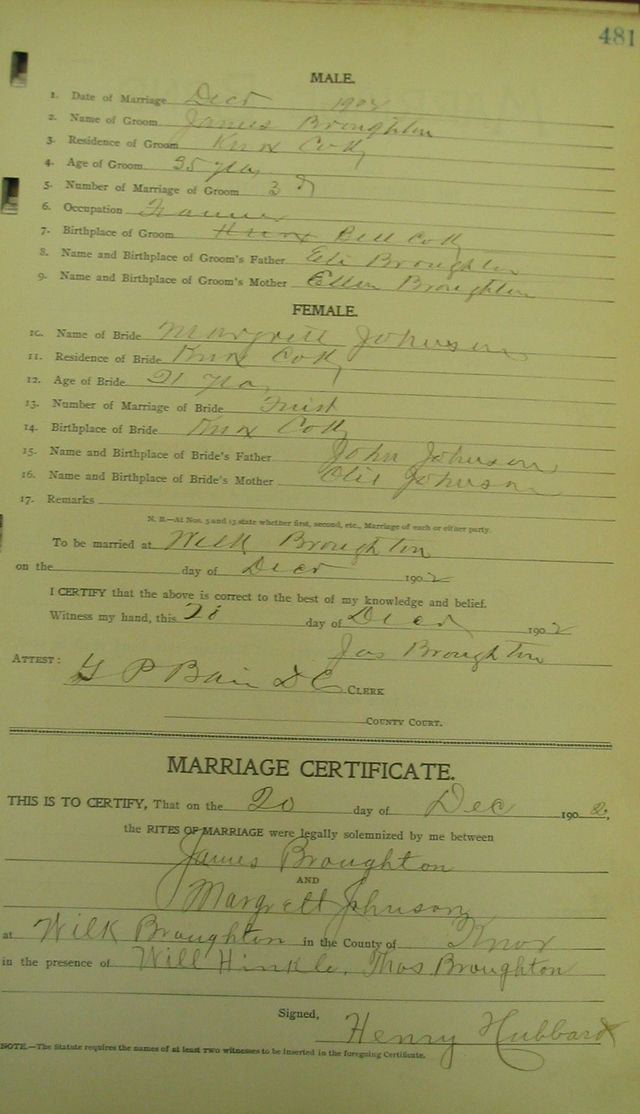 481
MALE.
1. Date of Marriage Decr 1902
2. Name of Groom James Broughton
3. Residence of Groom Knox Co Ky
4. Age of Groom 35 years
5. Number of Marriage of Groom 3d
6. Occupation Farmer
7. Birthplace of Groom Knox Bell Co Ky
8. Name and Birthplace of Groom's Father Eli Broughton
9. Name and Birthplace of Groom's Mother Ellen Broughton
FEMALE.
10. Name of Bride Margrett Johnson
11. Residence of Bride Knox Co Ky
12. Age of Bride 21 years
13. Number of Marriage of Bride First
14. Birthplace of Bride Knox Co Ky
15. Name and Birthplace of Bride's Father John Johnson
16. Name and Birthplace of Bride's Mother Johnson
17. Remarks
N. B.—At Nos. 5 and 13 state whether first, second, etc., Marriage of each or either party.
To be married at Wilk Broughton
on the day of Decr 1902
I CERTIFY that the above is correct to the best of my knowledge and belief.
Witness my hand, this 20 day of Decr 1902
Jas Broughton
ATTEST: G P Bain D C CLERK
COUNTY COURT.
MARRIAGE CERTIFICATE.
THIS IS TO CERTIFY, That on the 20 day of Dec 1902,
the RITES OF MARRIAGE were legally solemnized by me between
James Broughton
AND
Margrett Johnson
at Wilk Broughton in the County of Knox
in the presence of Will Hinkle, Thos Broughton
Signed,
Henry Hubbard
NOTE.—The Statute requires the names of at least TWO witnesses to be inserted in the foregoing Certificate.